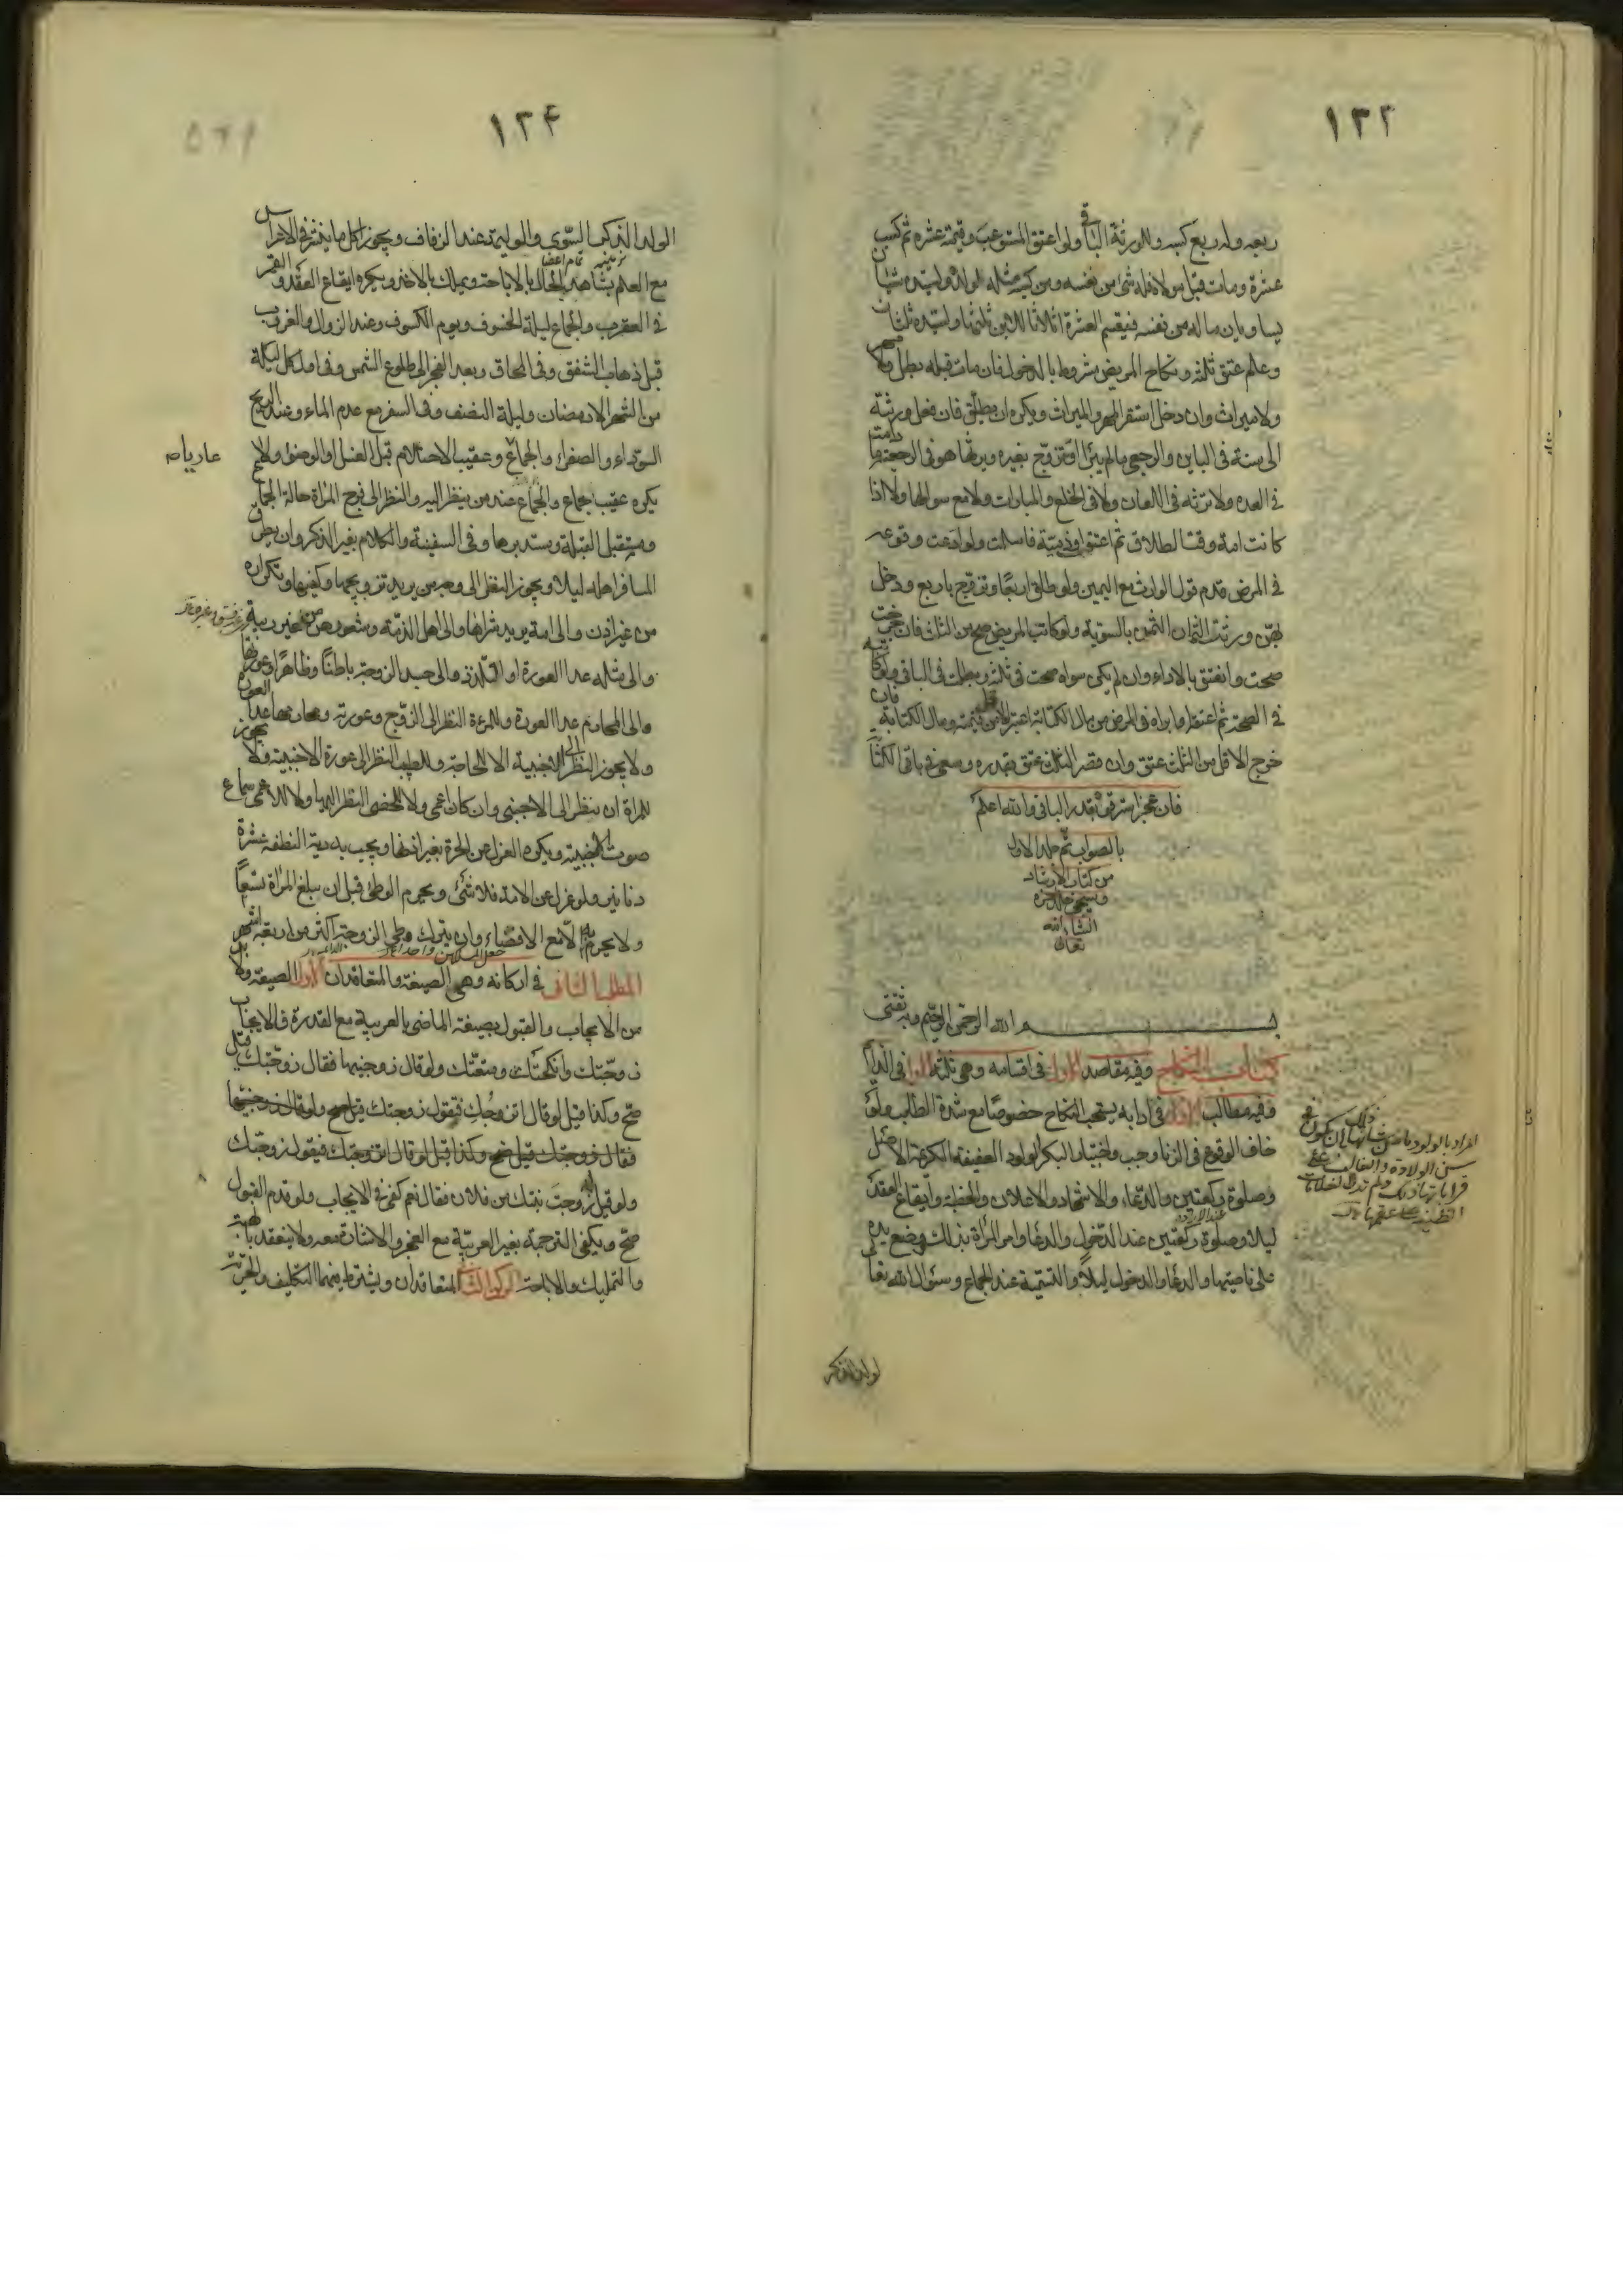 ١٢٢
ربعه وله ربع كسبه وللورثة الباقى ولو اعتق المستوعب وقيمته عشرة ثم كسب
عشرة ومات قبل مولاه فله شئ من نفسه ومن كسبه مثله لولده ولسيده شيئان
يساويان ماله من نفسه فيقسم العشرة اثلاثا للابن ثلثها ولسيده ثلثان
وعلم عتق ثلثه ونكاح المريض مشروط بالدخول فان مات قبله بطل ولا مهر
ولا ميراث وان دخل استقر المهر والميراث ويكره ان يطلق فان فعل ورثته
الى سنة فى الباين والرجعى ما لم يبرأ او تتزوج بغيره ويرثها هو فى الرجعية ما دامت
فى العده ولا ترثه فى اللعان ولا فى الخلع والمبارات ولا مع سوالها ولا اذا
كانت امة وقت الطلاق ثم اعتقت او ذمية فاسلمت ولو ادعت وقوعه
فى المرض قدم قول الوارث مع اليمين ولو طلق اربعا وتزوج باربع ودخل
بهن ورثت الثمان الثمن بالسوية ولو كاتب المريض صح من الثلث فان خرجت
صحت وانعتق بالاداء وان لم يكن سواه صحت فى ثلثه وبطلت فى الباقى ولو كاتبه
فى الصحة ثم اعتقه او ابراه فى المرض من مال الكتابة اعتبر الاقل من قيمته ومال الكتابة فان
خرج الاقل من الثلث عتق وان قصر الثلث عتق بقدره وسعى فى باقى الكتابة
فان عجز استرق بقدر الباقى والله اعلم
بالصواب تم جلد الاول
من كتاب الارشاد
ويجئ جلد
انشاء الله
تعالى
بسم الله الرحمن الرحيم وبه ثقتى
كتاب النكاح وفيه مقاصد الاول فى اقسامه وهى ثلثة الاول فى الدائم
وفيه مطالب الاول فى ادابه يستحب النكاح خصوصا مع شدة الطلب ولو
خاف الوقوع فى الزنا وجب واختيار البكر الولود العفيفة الكريمة الاصل
وصلوة ركعتين والدعاء والاشهاد والاعلان والخطبة وايقاع العقد
ليلا وصلوة ركعتين عند الدخول والدعاء وامر المراة بذلك ووضع يده
على ناصيتها والدعاء والدخول ليلا والتسمية عند الجماع وسؤال الله تعالى
المراد بالولود ما من شانها ذلك بان تكون فى
سن الولادة
الولد الذكر
١٢۴
الولد الذكر السوى والوليمة عند الزفاف ويجوز اكل ما ينثر فى الاعراس
مع العلم بشاهد الحال بالاباحة ويملك بالاخذ ويكره ايقاع العقد والقمر
فى العقرب والجماع ليلة الخسوف ويوم الكسوف وعند الزوال والغروب
قبل ذهاب الشفق وفى المحاق وبعد الفجر الى طلوع الشمس وفى اول كل ليلة
من الشهر الا رمضان وليلة النصف وفى السفر مع عدم الماء وعند الريح
السوداء والصفراء والجماع وعقيب الاحتلام قبل الغسل او الوضوء ولا
يكره عقيب جماع والجماع عند من ينظر اليه والنظر الى فرج المراة حالة الجماع
ومستقبل القبلة ومستدبرها وفى السفينة والكلام بغير الذكر وان يطرق
المسافر اهله ليلا ويجوز النظر الى وجه من يريد تزويجها وكفيها وتكراره
من غير اذن والى امة يريد شراها والى اهل الذمة وشعورهن من غير ريبة
والى مثله عدا العورة او التلذذ والى جسد الزوجة باطنا وظاهرا وعورتها
والى المحارم عدا العورة وللمرءة النظر الى الزوج وعورته ومحارمها عدا العورة
ولا يجوز النظر الى الاجنبية الا للحاجة وللطبيب النظر الى عورة الاجنبية ولا يجوز
للمراة ان تنظر الى الاجنبى وان كان اعمى ولا للخصى النظر اليها ولا للاعمى سماع
صوت الاجنبية ويكره العزل عن الحرة بغير اذنها ويجب به دية النطفة عشرة
دنانير ولو عزل عن الامة فلا شئ ويحرم الوطى قبل ان تبلغ المراة تسعا
ولا يحرم به الا مع الافضاء وان يترك وطى الزوجة اكثر من اربعة اشهر
المطلب الثانى فى اركانه وهى الصيغة والمتعاقدان الاول الصيغة ولا بد
من الايجاب والقبول بصيغة الماضى بالعربية مع القدرة فالايجاب
زوجتك وانكحتك ومتعتك ولو قال زوجنيها فقال زوجتك قيل
صح وكذا قيل لو قال اتزوجك فيقول زوجتك قيل صح ولو قال زوجنيها
فقال زوجتك قيل صح وكذا قيل لو قال اتزوجك فيقول زوجتك
ولو قيل ازوجت بنتك من فلان فقال نعم كفى فى الايجاب ولو قدم القبول
صح ويكفى الترجمة بغير العربية مع العجز والاشارة معه ولا ينعقد بالهبة
والتمليك والاباحة الركن الثانى المتعاقدان ويشترط فيهما التكليف والحرية
عارياه